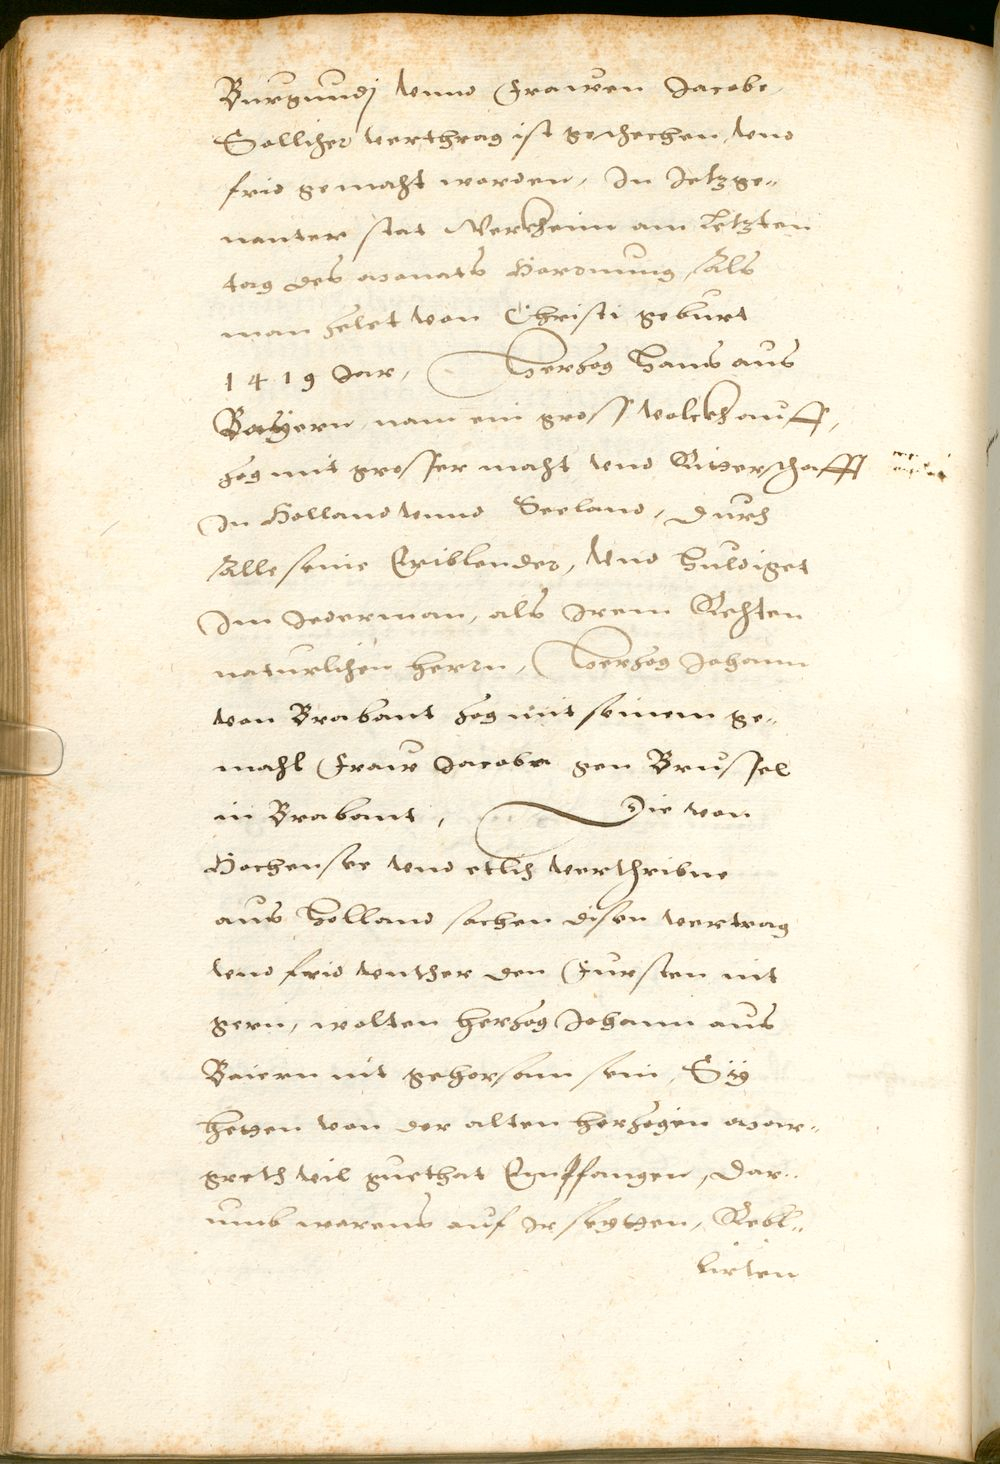 Burgundj vnnd Frawen Jacobe
Sollicher verthrag ist geschechen, vnd
frid gemacht worden, In Jetzge„
nanter stat Werckheim am letzten
tag des Monats Hornung, Als
man zelet von Christi geburt
1419 Jar, Herzog Hans aus
Bayern nam ein gross volckh auff,
zog mit grosser macht vnd Ritterschafft
In Holland vnnd Seeland, Durch
Alle seine Eriblender, Vnd huldiget
Im Jederman, als Irem Rechten
naturlichen herrn, Herzog Johann
von Brabant zog mit seinem ge„
mahl Fraw Jacobe gen Brussel
in Brabant, Die von
Hochensee vnd etlich verthribne
aus Holland sachen disen vertrag
vnd frid vnther den Fursten nit
gern, wolten herzog Johann aus
Baiern nit gehorsam sein, Sy
hetten von der alten herzogin Mar„
greth vil guethat Empfangen, Dar„
umb warens auf Ir seytten, Rebl„
lirten